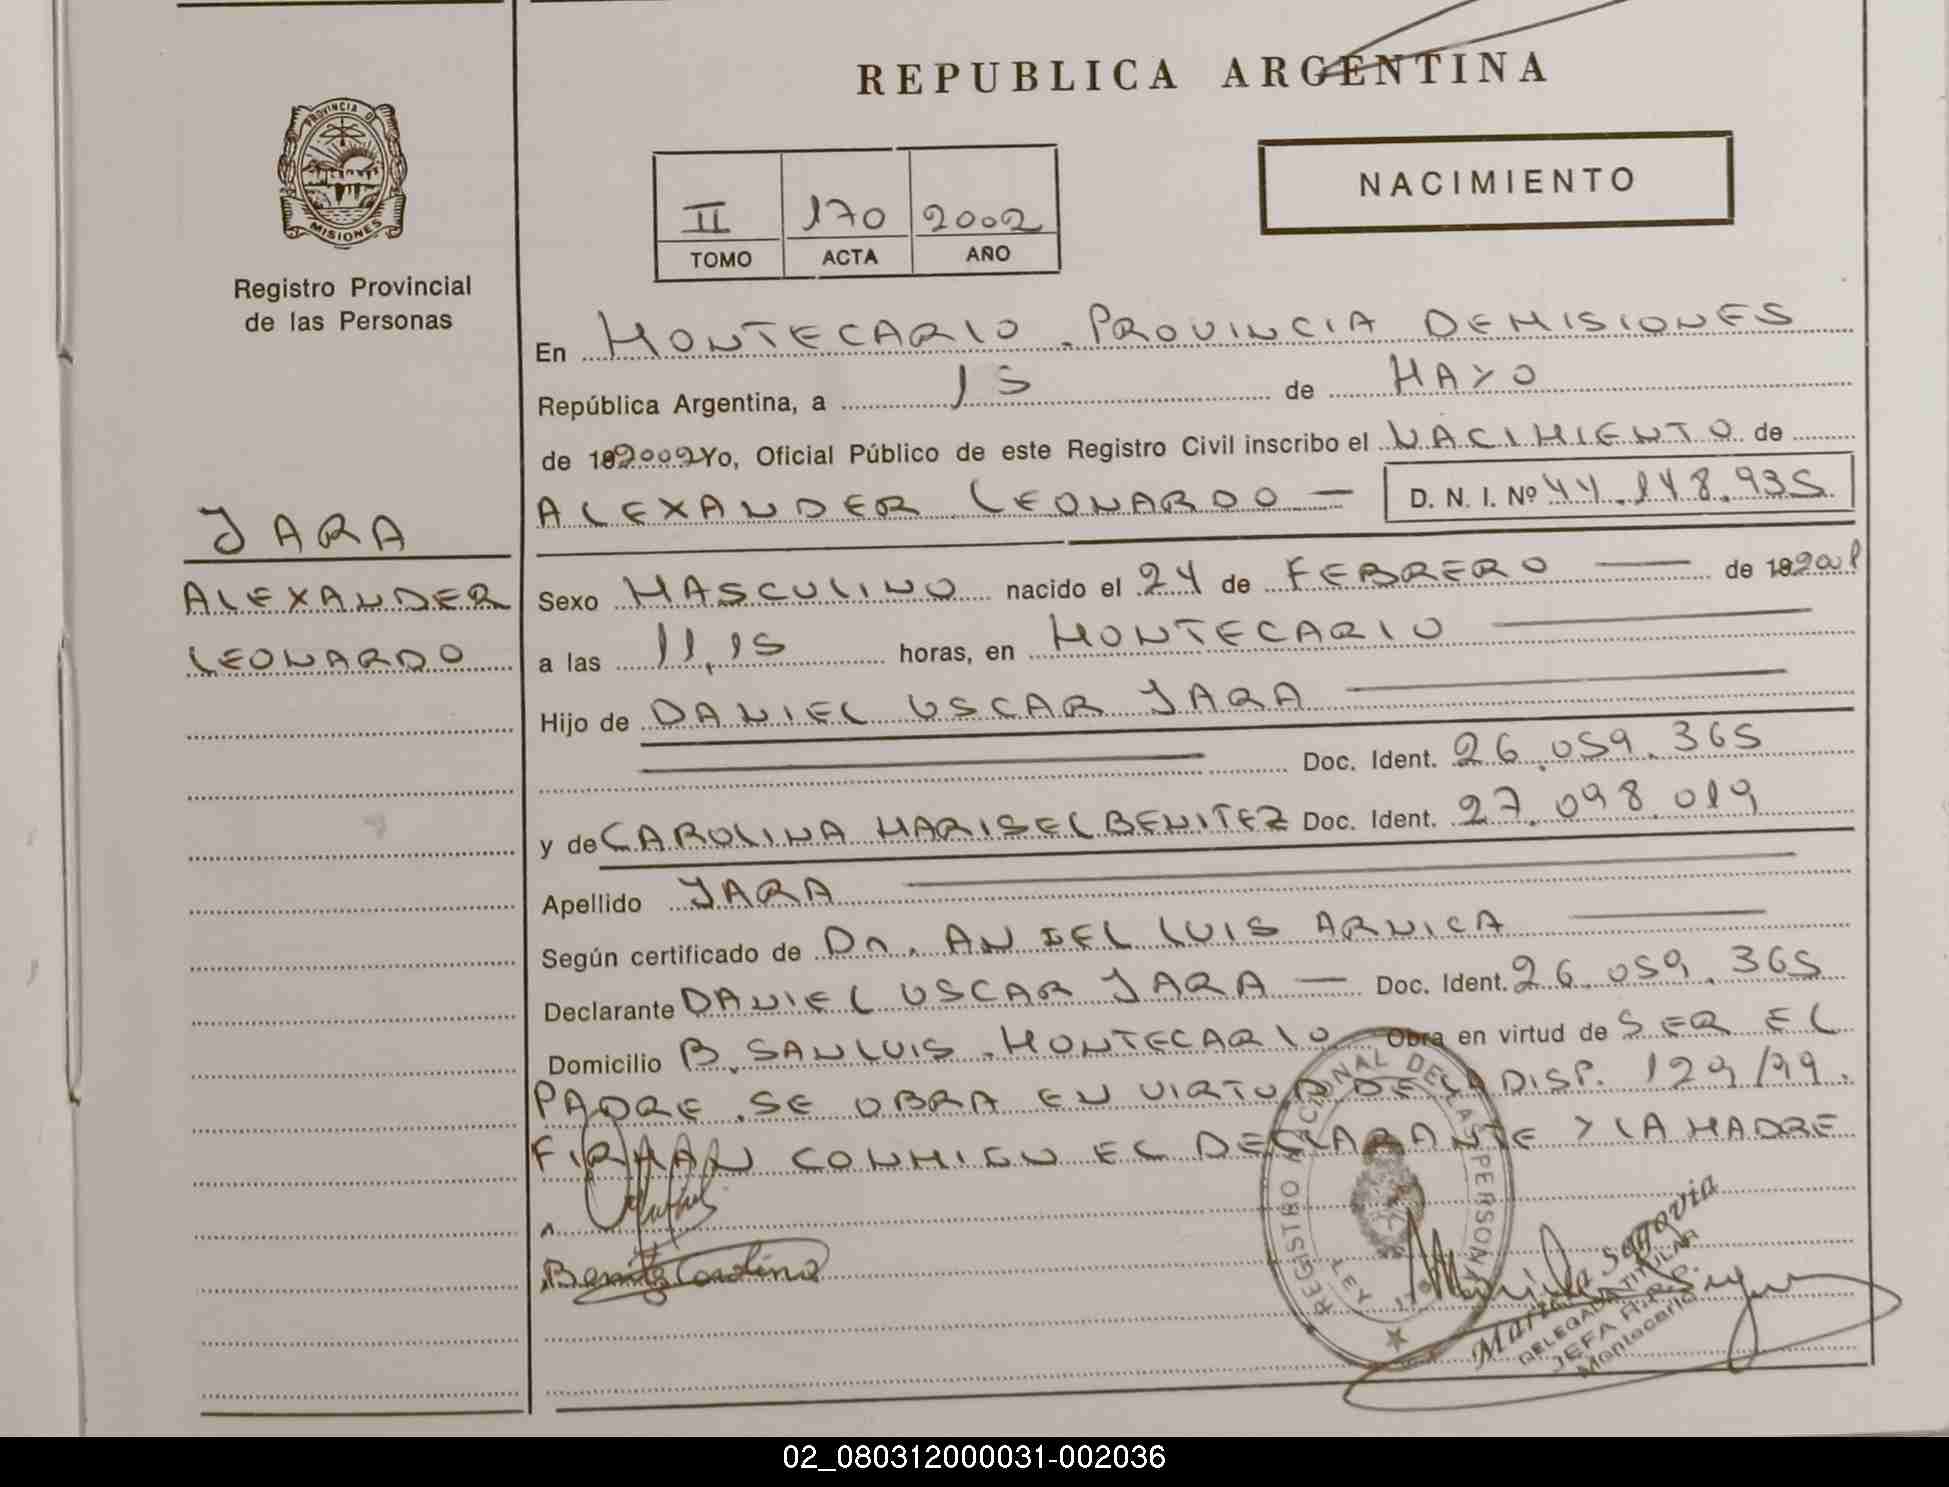 REPUBLICA ARGENTINA
PROVINCIA DE
MISIONES
Registro Provincial
de las Personas
II 170 2002
TOMO ACTA AÑO
NACIMIENTO
En MONTECARLO. PROVINCIA DE MISIONES
República Argentina, a 15 de MAYO
de 2002 Yo, Oficial Público de este Registro Civil inscribo el NACIMIENTO de
ALEXANDER LEONARDO — D. N. I. Nº 44.148.935
JARA
ALEXANDER
LEONARDO
Sexo MASCULINO nacido el 24 de FEBRERO — de 2001
a las 11,15 horas, en MONTECARLO —
Hijo de DANIEL OSCAR JARA —
Doc. Ident. 26.059.365
y de CAROLINA MARISEL BENITEZ Doc. Ident. 27.098.019
Apellido JARA —
Según certificado de Dr. ANGEL LUIS ARNICA —
Declarante DANIEL OSCAR JARA — Doc. Ident. 26.059.365
Domicilio B. SAN LUIS. MONTECARLO Obra en virtud de SER EL
PADRE. SE OBRA EN VIRTUD DE LA DISP. 129/99.
FIRMAN CONMIGO EL DECLARANTE Y LA MADRE
Benitez Carolina
REGISTRO NACIONAL DE LAS PERSONAS
LEY
Segovia
DELEGADA TITULAR
JEFA R.P.P.
Montecarlo
02_080312000031-002036